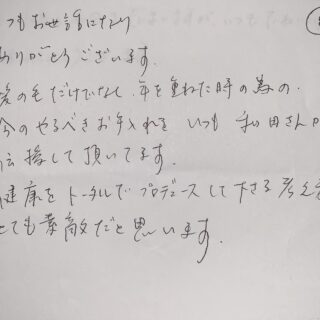 つもお世話になり
ありがとうございます.
髪の毛だけでなく.年を重ねた時の為の.
今のやるべきお手入れを いつも 和田さんか
応援して頂いてます.
健康をトータルでプロデュースして下さる考え
とても素敵だと思います.